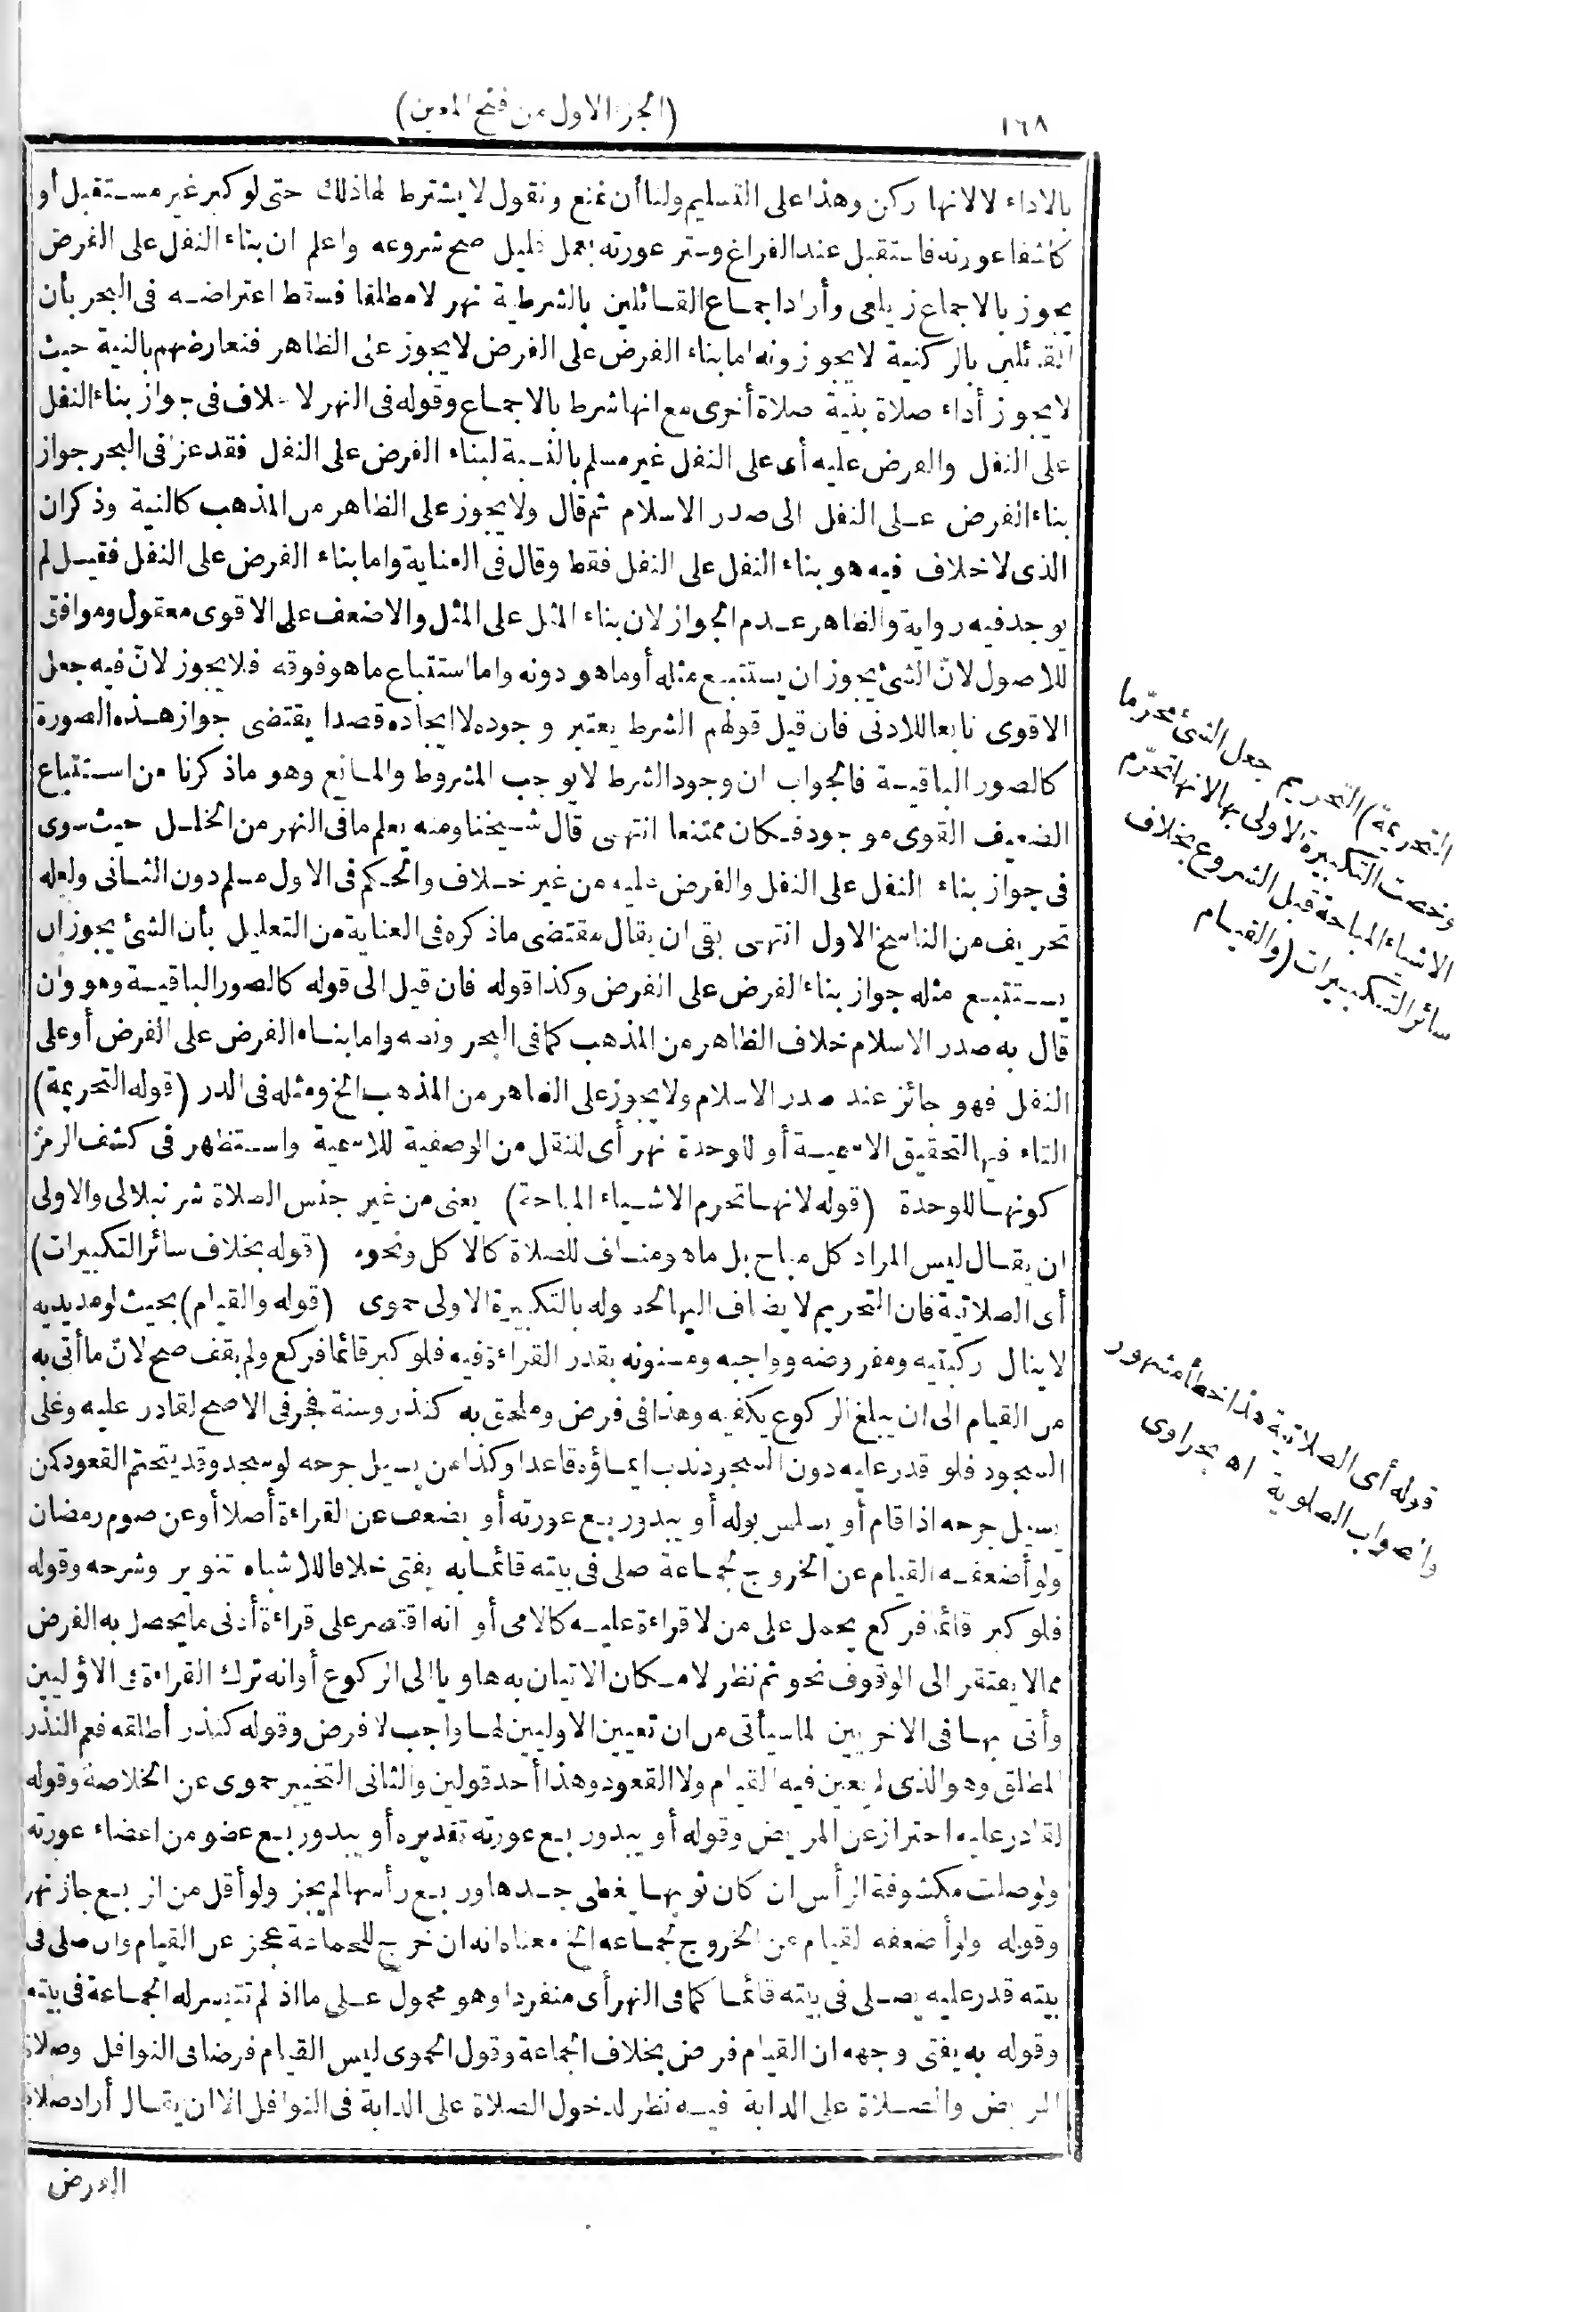 ١٦٨
(الجزء الاول من فتح المعين)
بالاداء لا لانها ركن وهذا على التسليم ولنا أن نمنع ونقول لا يشترط لها ذلك حتى لو كبر غير مستقبل أو
كاشفا عورته فاستقبل عند الفراغ وستر عورته بعمل قليل صح شروعه واعلم ان بناء النفل على الفرض
يجوز بالاجماع زيلعى وأراد اجماع القائلين بالشرطية نهر لا مطلقا فسقط اعتراضه فى البحر بأن
القائلين بالركنية لا يجوزونه اما بناء الفرض على الفرض لا يجوز على الظاهر فنعارضهم بالنية حيث
لا يجوز أداء صلاة بنية صلاة أخرى مع انها شرط بالاجماع وقوله فى النهر لا خلاف فى جواز بناء النفل
على النفل والفرض عليه أى على النفل غير مسلم بالنسبة لبناء الفرض على النفل فقد عزا فى البحر جواز
بناء الفرض على النفل الى صدر الاسلام ثم قال ولا يجوز على الظاهر من المذهب كالنية وذكر ان
الذى لا خلاف فيه هو بناء النفل على النفل فقط وقال فى العناية واما بناء الفرض على النفل فقيل لم
يوجد فيه رواية والظاهر عدم الجواز لان بناء المثل على المثل والاضعف على الاقوى معقول وموافق
للاصول لانّ الشئ يجوز ان يستتبع مثله أو ما هو دونه واما استتباع ما هو فوقه فلا يجوز لانّ فيه جعل
الاقوى تابعا للادنى فان قيل قولهم الشرط يعتبر وجوده لا ايجاده قصدا يقتضى جواز هذه الصورة
كالصور الباقية فالجواب ان وجود الشرط لا يوجب المشروط والمانع وهو ما ذكرنا من استتباع
الضعيف القوى موجود فكان ممتنعا انتهى قال شيخنا ومنه يعلم ما فى النهر من الخلل حيث سوى
فى جواز بناء النفل على النفل والفرض عليه من غير خلاف والحكم فى الاول مسلم دون الثانى ولعله
تحريف من الناسخ الاول انتهى بقى ان يقال مقتضى ما ذكره فى العناية من التعليل بأن الشئ يجوز ان
يستتبع مثله جواز بناء الفرض على الفرض وكذا قوله فان قيل الى قوله كالصور الباقية وهو وان
قال به صدر الاسلام خلاف الظاهر من المذهب كما فى البحر ونصه واما بناء الفرض على الفرض أو على
النفل فهو جائز عند صدر الاسلام ولا يجوز على الظاهر من المذهب الخ ومثله فى الدر (قوله التحريمة)
التاء فيها لتحقيق الاسمية أو للوحدة نهر أى للنقل من الوصفية للاسمية واستظهر فى كشف الرمز
كونها للوحدة (قوله لانها تحرم الاشياء المباحة) يعنى من غير جنس الصلاة شرنبلالى والاولى
ان يقال ليس المراد كل مباح بل ما هو مناف للصلاة كالاكل ونحوه (قوله بخلاف سائر التكبيرات)
أى الصلاتية فان التحريم لا يضاف اليها لحصوله بالتكبيرة الاولى حموى (قوله والقيام) بحيث لو مد يديه
لا ينال ركبتيه ومفروضه وواجبه ومسنونه بقدر القراءة فيه فلو كبر قائما فركع ولم يقف صح لانّ ما أتى به
من القيام الى ان يبلغ الركوع يكفيه وهذا فى فرض وملحق به كنذر وسنة فجر فى الاصح لقادر عليه وعلى
السجود فلو قدر عليه دون السجود ندب ايماؤه قاعدا وكذا من يسيل جرحه لو سجد وقد يتحتم القعود كمن
يسيل جرحه اذا قام أو يسلس بوله أو يبدو ربع عورته أو يضعف عن القراءة أصلا أو عن صوم رمضان
ولو أضعفه القيام عن الخروج لجماعة صلى فى بيته قائما به يفتى خلافا للاشباه تنوير وشرحه وقوله
فلو كبر قائما فركع يحمل على من لا قراءة عليه كالامى أو انه اقتصر على قراءة أدنى ما يحصل به الفرض
مما لا يفتقر الى الوقوف نحو ثم نظر لامكان الاتيان به هاويا الى الركوع أو انه ترك القراءة فى الاوليين
وأتى بها فى الاخريين لما سيأتى من ان تعيين الاوليين لها واجب لا فرض وقوله كنذر أطلقه فعم النذر
المطلق وهو الذى لم يعين فيه القيام ولا القعود وهذا أحد قولين والثانى التخيير حموى عن الخلاصة وقوله
لقادر عليه احتراز عن المريض وقوله أو يبدو ربع عورته تقديره أو يبدو ربع عضو من اعضاء عورته
ولو صلت مكشوفة الرأس ان كان ثوبها يغطى جسدها وربع رأسها لم يجز ولو أقل من الربع جاز نهر
وقوله ولو أضعفه القيام عن الخروج لجماعة الخ معناه انه ان خرج للجماعة عجز عن القيام وان صلى فى
بيته قدر عليه يصلى فى بيته قائما كما فى النهر أى منفردا وهو محمول على ما اذ لم تتيسر له الجماعة فى بيته
وقوله به يفتى وجهه ان القيام فرض بخلاف الجماعة وقول الحموى ليس القيام فرضا فى النوافل وصلاة
المريض والصلاة على الدابة فيه نظر لدخول الصلاة على الدابة فى النوافل الا ان يقال أراد صلاة
الفرض
التحريمة) التحريم جعل الشئ محرّما
وخصت التكبيرة الاولى بها لانها تحرّم
الاشياء المباحة قبل الشروع بخلاف
سائر التكبيرات (والقيام
قوله أى الصلاتية هذا خطأ مشهور
والصواب الصلوية اه بحراوى